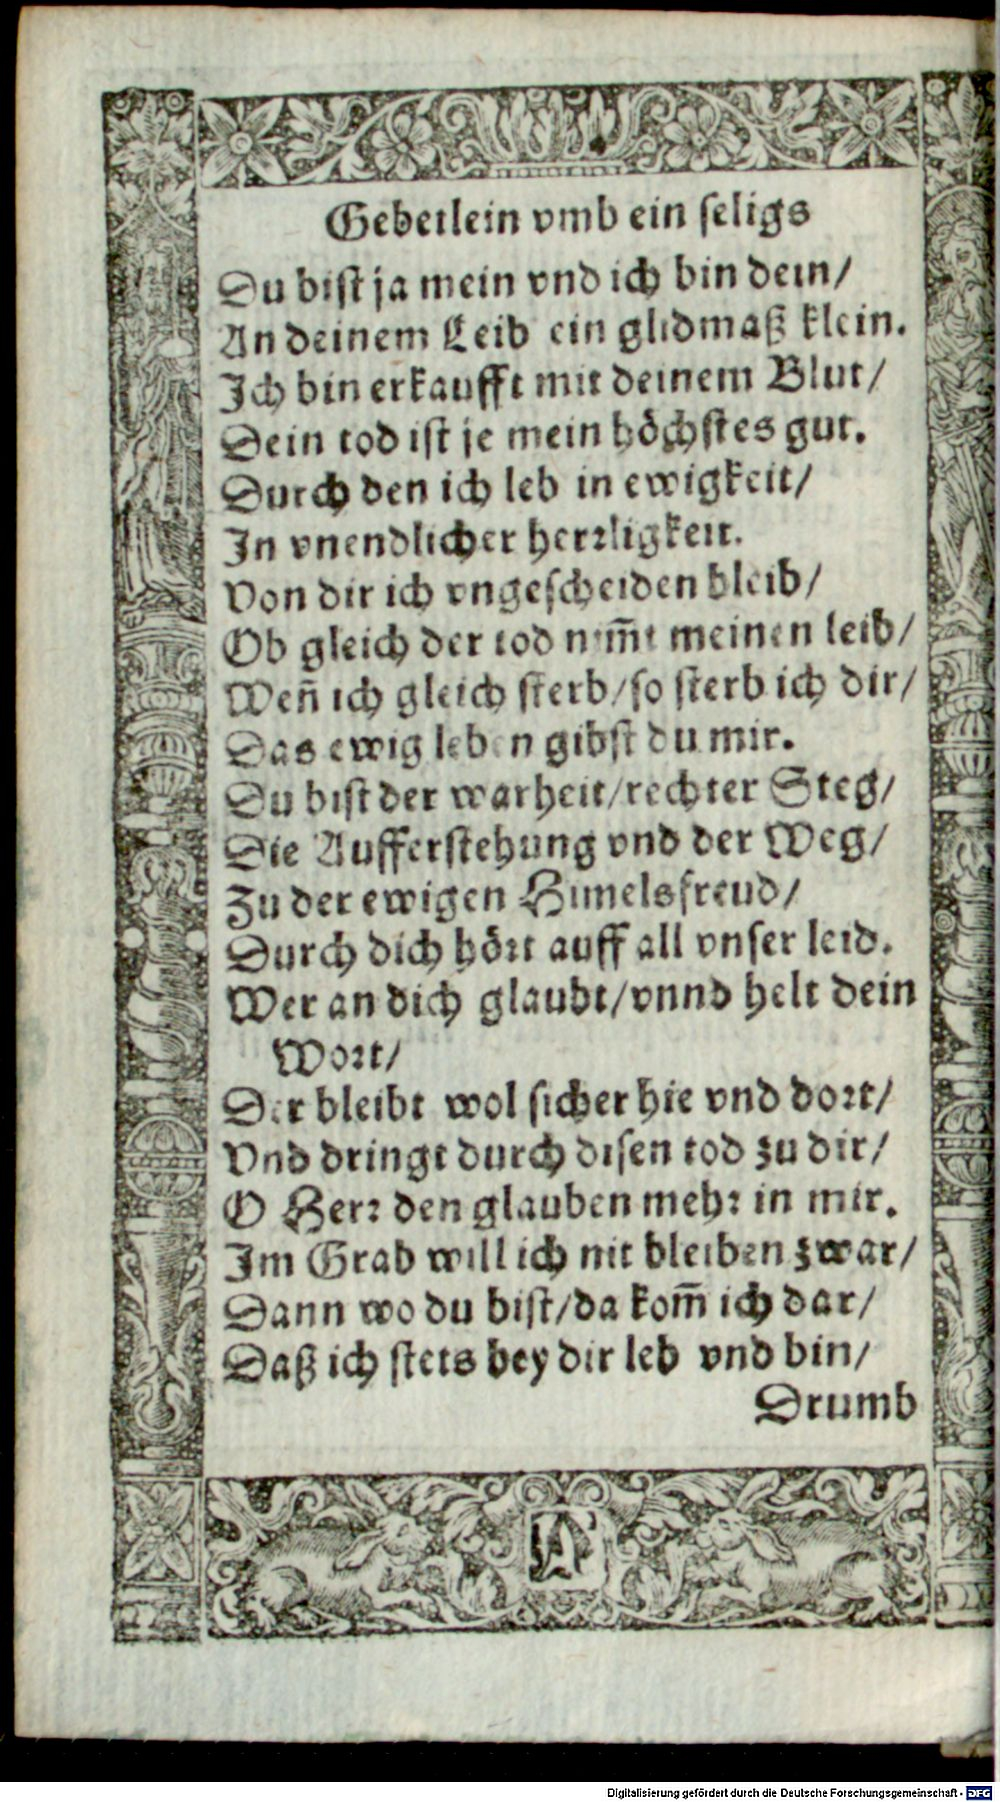 Gebetlein vmb ein seligs
Du bist ja mein vnd ich bin dein/
An deinem Leib ein glidmaß klein.
Ich bin erkaufft mit deinem Blut/
Dein tod ist je mein höchstes gut.
Durch den ich leb in ewigkeit/
In vnendlicher herrligkeit.
Von dir ich vngescheiden bleib/
Ob gleich der tod nim̃t meinen leib/
Weñ ich gleich sterb/so sterb ich dir/
Das ewig leben gibst du mir.
Du bist der warheit/rechter Steg/
Die Aufferstehung vnd der Weg/
Zu der ewigen Himelsfreud/
Durch dich hört auff all vnser leid.
Wer an dich glaubt/vnnd helt dein
Wort/
Der bleibt wol sicher hie vnd dort/
Vnd dringt durch disen tod zu dir/
O Herr den glauben mehr in mir.
Im Grab will ich nit bleiben zwar/
Dann wo du bist/da kom̃ ich dar/
Daß ich stets bey dir leb vnd bin/
Drumb
Digitalisierung gefördert durch die Deutsche Forschungsgemeinschaft - DFG